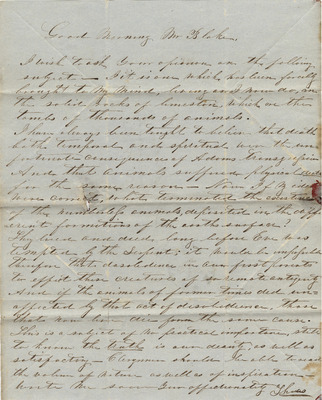 Good Morning Mr Blake,
I wish to ask your opinion on the following
subject — It is one which has been forcibly
brought to my mind, living as I now do, on
the solid rocks of limestone, which are the
tombs of thousands of animals.
I have always been taught to believe that death
both temporal and spiritual were the un-
fortunate consequences of Adams transgression
And that animals suffered physical death
for the same reason — Now if
were correct, what terminated the existence
of the animals, deposited in the diff
erent formations of the earths surface?
They lived and died, long before Eve was
tempted by the Serpent; it would be impossible
therefore that disobedience in our first parents
to effect these creatures of
And if the animals of former times died un-
affected by that act of disobedience, those
that now live die from the same cause.
This is a subject of no practical importance, still
to know the truth is our desire, as well as
satisfactory — Clergymen should be able to read
the volume of Nature as well as of inspiration —
Write me soon Yours affectionately